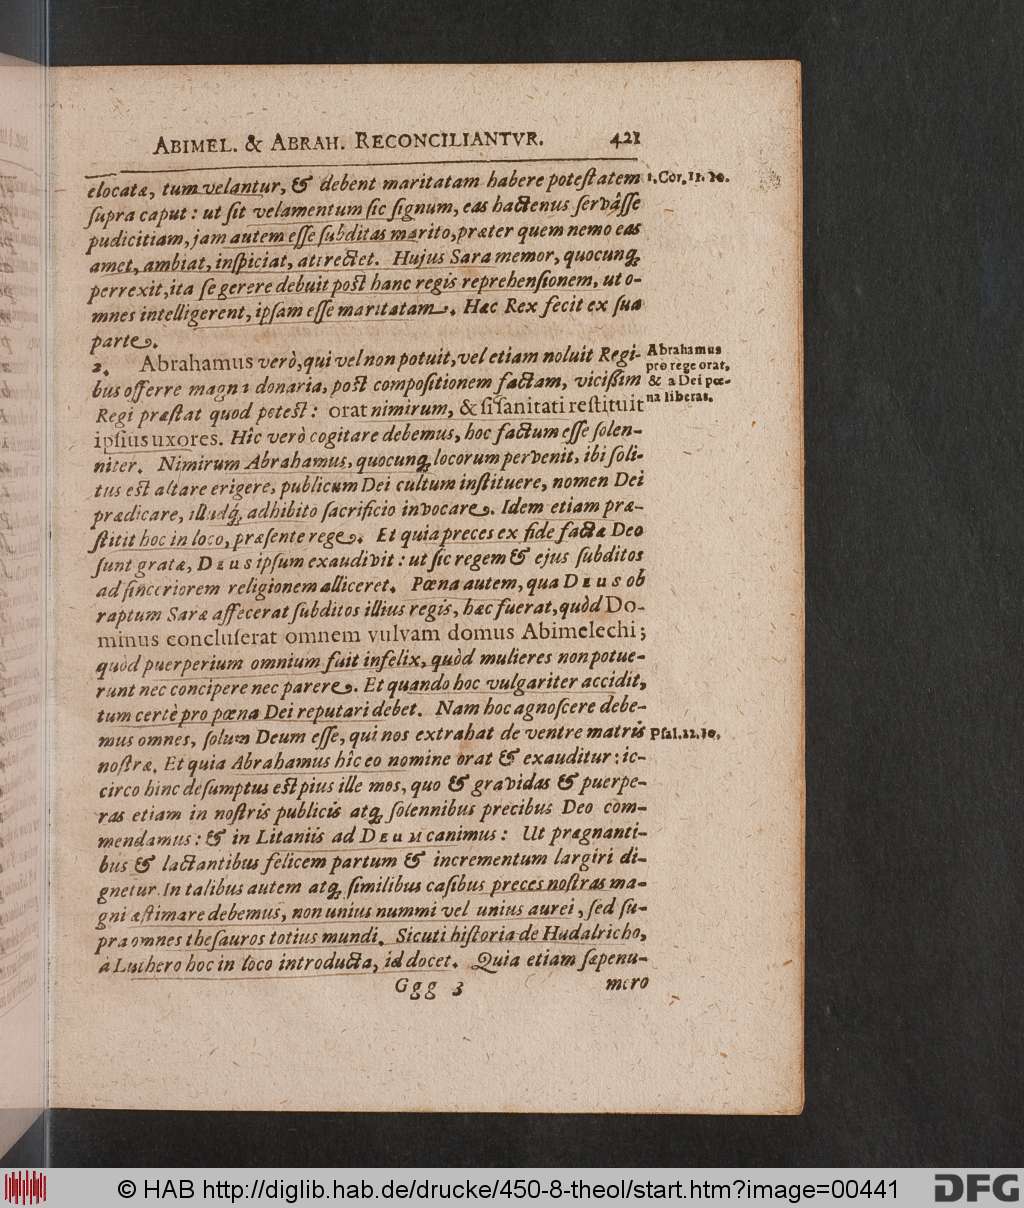 ABIMEL. & ABRAH. RECONCILIANTVR. 421
elocatæ, tum velantur, & debent maritatam habere potestatem
1. Cor. 11. 10.
ſupra caput: ut ſit velamentum ſic ſignum, eas hactenus ſervâſſe
pudicitiam, jam autem eſſe ſubditas marito, præter quem nemo eas
amet, ambiat, inſpiciat, attrectet. Hujus Sara memor, quocunq;
perrexit, ita ſe gerere debuit poſt hanc regis reprehenſionem, ut o-
mnes intelligerent, ipſam eſſe maritatam. Hæc Rex fecit ex ſua
parte.
2. Abrahamus verò, qui vel non potuit, vel etiam noluit Regi-
Abrahamus
pro rege orat,
& a Dei pœ-
na liberat.
bus offerre magna donaria, poſt compoſitionem factam, viciſſim
Regi præſtat quod poteſt: orat nimirum, & ſiſanitati reſtituit
ipſius uxores. Hîc verò cogitare debemus, hoc factum eſſe ſolen-
niter. Nimirum Abrahamus, quocunq; locorum pervenit, ibi ſoli-
tus eſt altare erigere, publicum Dei cultum inſtituere, nomen Dei
prædicare, illudq́; adhibito ſacrificio invocare. Idem etiam præ-
ſtitit hoc in loco, præſente rege. Et quia preces ex fide factæ Deo
ſunt gratæ, DEUS ipſum exaudivit: ut ſic regem & ejus ſubditos
ad ſinceriorem religionem alliceret. Pœna autem, qua DEUS ob
raptum Saræ affecerat ſubditos illius regis, hæc fuerat, quòd Do-
minus concluſerat omnem vulvam domus Abimelechi;
quòd puerperium omnium fuit infelix, quòd mulieres non potue-
runt nec concipere nec parere. Et quando hoc vulgariter accidit,
tum certè pro pœna Dei reputari debet. Nam hoc agnoſcere debe-
mus omnes, ſolum Deum eſſe, qui nos extrahat de ventre matris
Pſal. 22. 10.
noſtræ. Et quia Abrahamus hîc eo nomine orat & exauditur: ic-
circo hinc deſumptus eſt pius ille mos, quo & gravidas & puerpe-
ras etiam in noſtris publicis atq; ſolennibus precibus Deo com-
mendamus: & in Litaniis ad DEUM canimus: Ut prægnanti-
bus & lactantibus felicem partum & incrementum largiri di-
gnetur. In talibus autem atq; ſimilibus caſibus preces noſtras ma-
gni æſtimare debemus, non unius nummi vel unius aurei, ſed ſu-
pra omnes theſauros totius mundi. Sicuti hiſtoria de Hudalricho,
à Luthero hoc in loco introducta, id docet. Quia etiam ſæpenu-
Ggg 3 mero
© HAB http://diglib.hab.de/drucke/450-8-theol/start.htm?image=00441
DFG